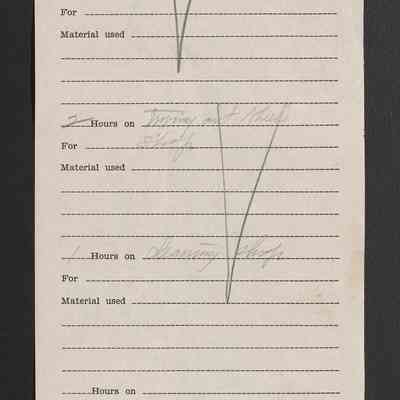 For
Material used
2 Hours on Turning out Shed
For Shop
Material used
1 Hours on Cleaning Shop
For
Material used
Hours on